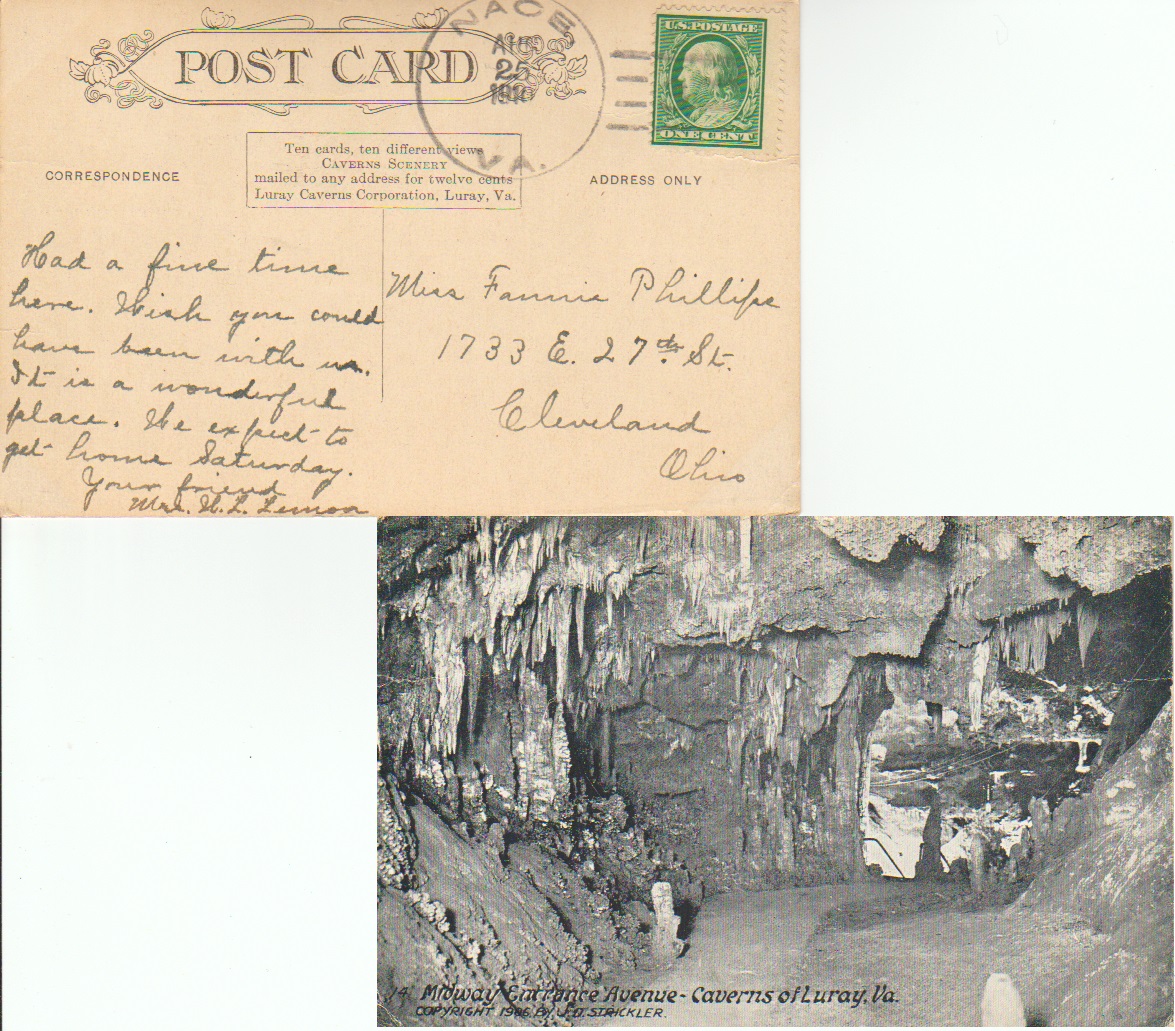 POST CARD
NACE
AUG
25
1910
VA.
U.S. POSTAGE
ONE CENT
Ten cards, ten different views
CAVERNS SCENERY
mailed to any address for twelve cents
Luray Caverns Corporation, Luray, Va.
CORRESPONDENCE
ADDRESS ONLY
Had a fine time
here. Wish you could
have been with us.
It is a wonderful
place. We expect to
get home Saturday.
Your friend
Mrs. H. L. Lemon
Miss Fannie Phillips
1733 E. 27th St.
Cleveland
Ohio
14 Midway Entrance Avenue - Caverns of Luray, Va.
COPYRIGHT 1906 BY J.D. STRICKLER.